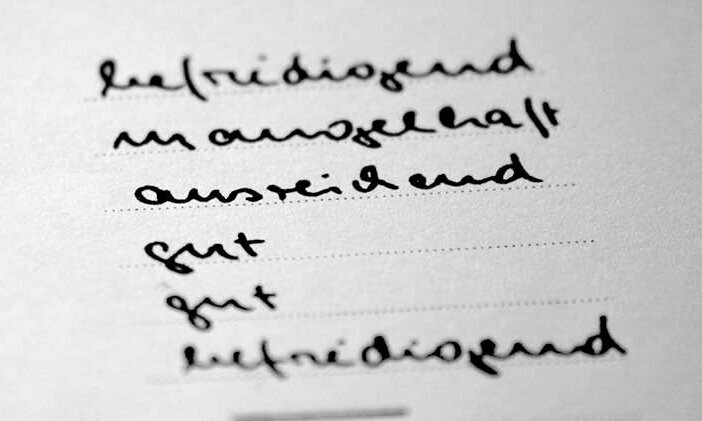 befridiogend
mangelhaft
ausreichend
gut
gut
befridiogend